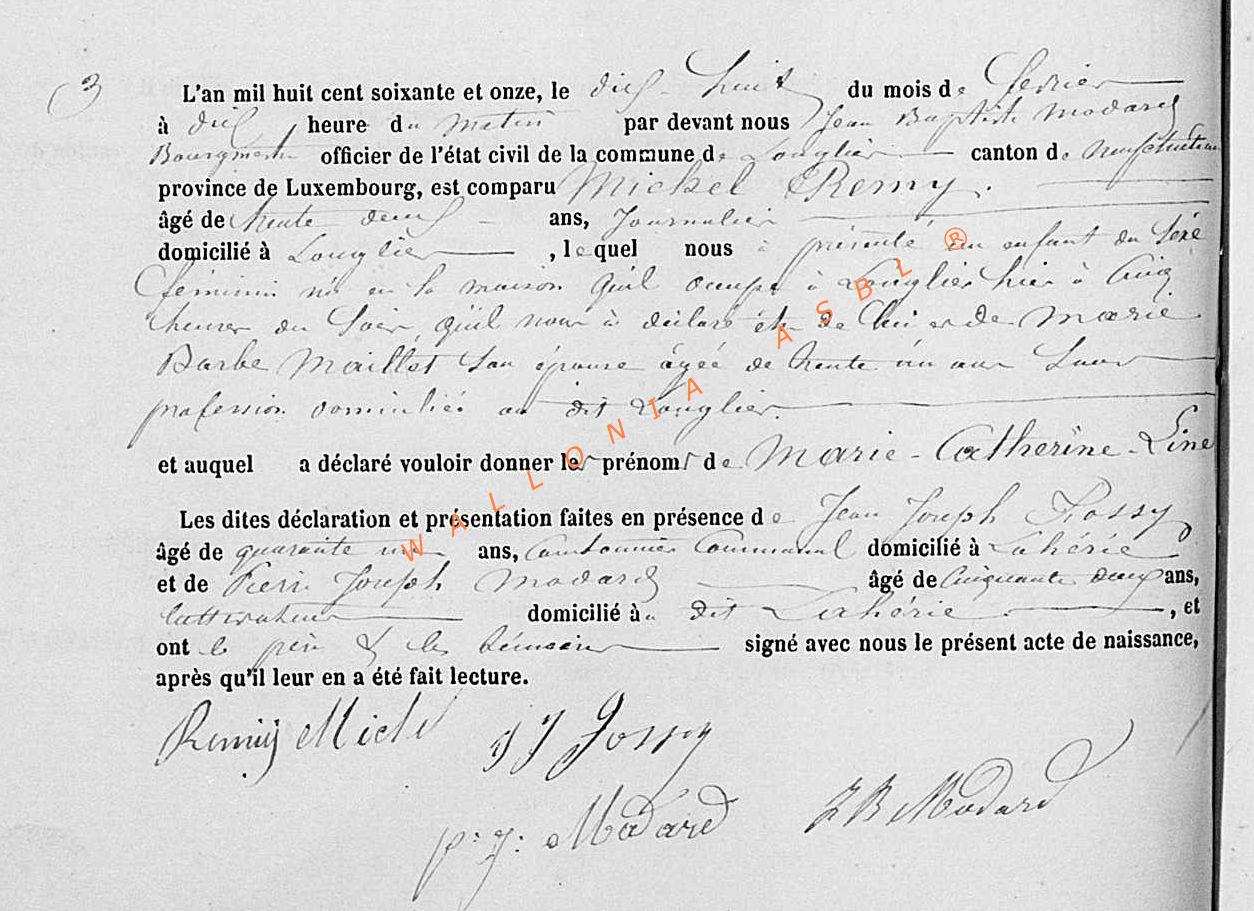 3
L'an mil huit cent soixante et onze, le dix-huit du mois de fevrier
à dix heure du matin par devant nous Jean Baptiste Modard
Bourgmestre officier de l'état civil de la commune de Longlier canton de Neufchateau
province de Luxembourg, est comparu Michel Remy.
âgé de trente deux ans, Journalier
domicilié à Longlier, lequel nous à présenté un enfant du sexe
féminin né en la maison qu'il occupe à Longlier hier à cinq
heures du soir, qu'il nous à déclaré être de lui et de Marie
Barbe Maillet son épouse âgée de trente un ans sans
profession domiciliée au dit Longlier.
et auquel a déclaré vouloir donner les prénoms de Marie-Catherine-Line
Les dites déclaration et présentation faites en présence de Jean Joseph Fossy
âgé de quarante un ans, Cantonnier Communal domicilié à Lahérie
et de Pierre Joseph Modard âgé de cinquante deux ans,
cultivateur domicilié au dit Lahérie, et
ont le père & les témoins signé avec nous le présent acte de naissance,
après qu'il leur en a été fait lecture.
Remij Michel JJ Fossy
p. j. Modard JB Modard
WALLONIA ASBL ®